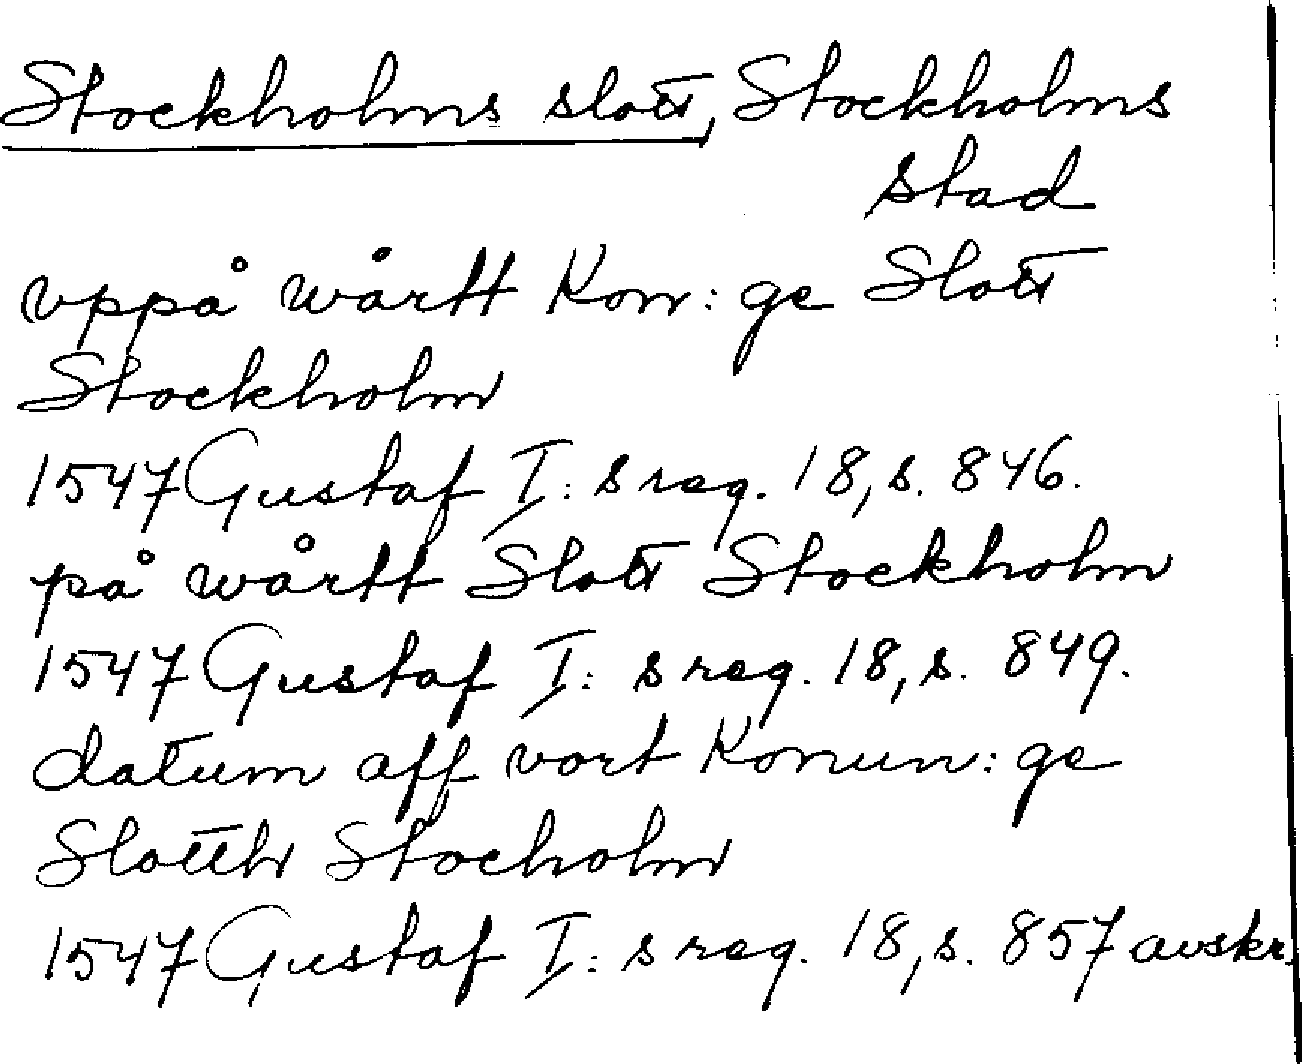 Stockholms slott, Stockholms
stad
vppå wårtt Kon: ge Slott
Stockholm
1547 Gustaf I: s reg. 18, s. 846.
på wårtt Slott Stockholm
1547 Gustaf I: s reg. 18, s. 849.
datum aff vort Konun: ge
Slotth Stocholm
1547 Gustaf I: s reg. 18, s. 857 avskr.